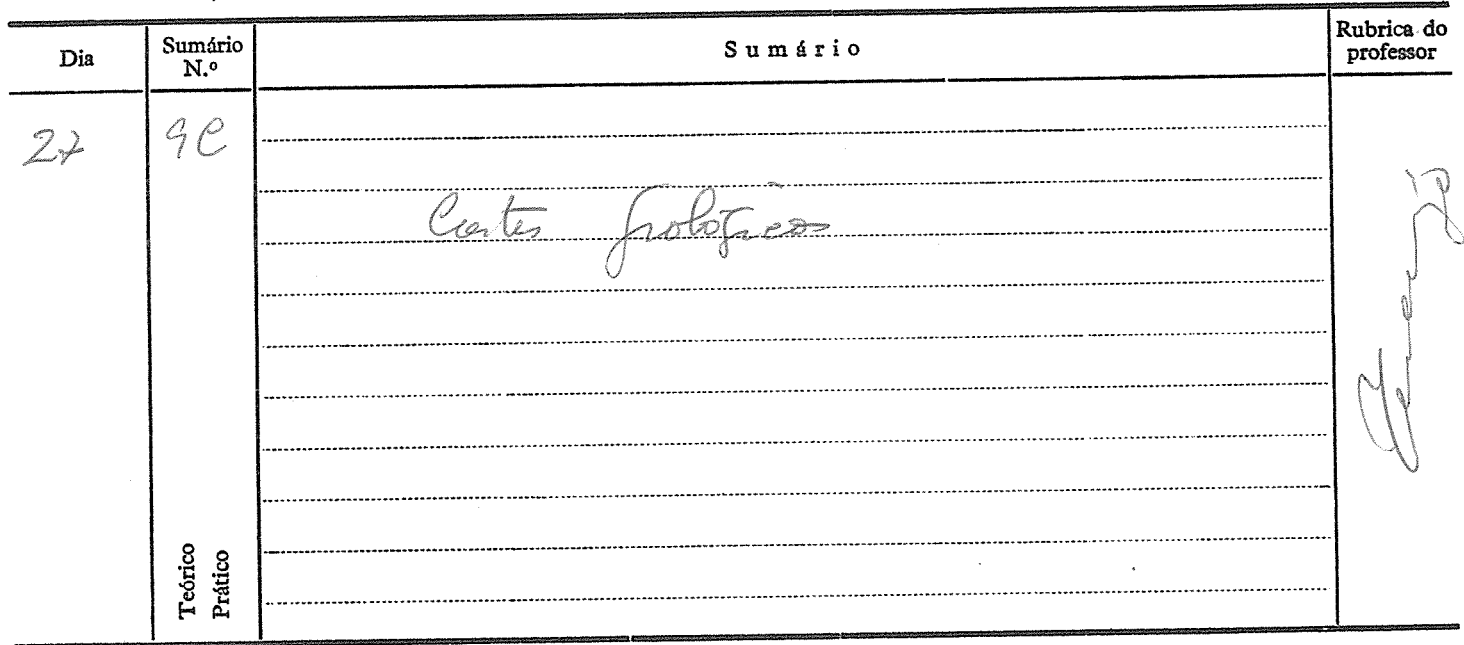 Dia
Sumário
N.º
Sumário
Rubrica do
professor
27
9C
Cortes geológicos
Teórico
Prático